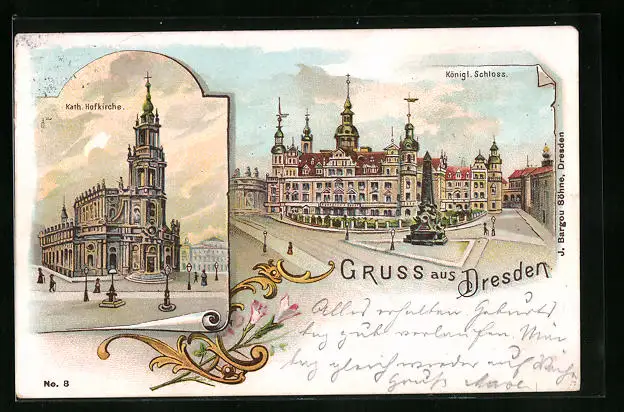 Kath. Hofkirche.
Königl. Schloss.
J. Bargou Söhne, Dresden
GRUSS aus Dresden
Alles erhalten Geburts
tag gut verlaufen.
tag gleich wieder auf
Gruß
No. 8